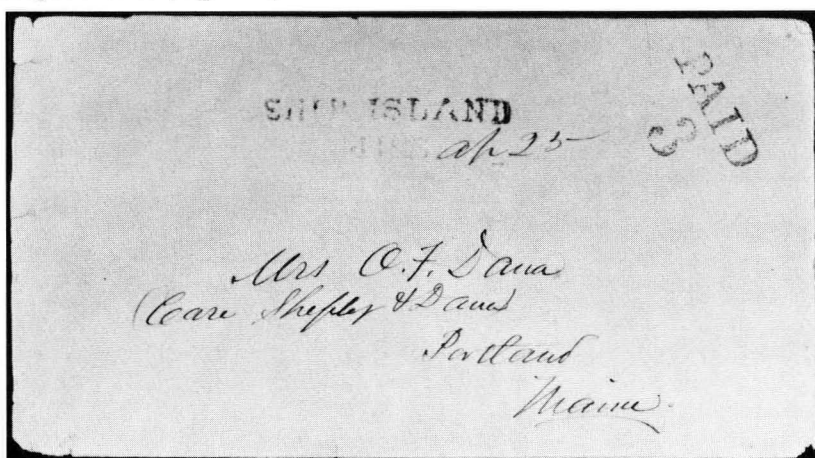 SHIP ISLAND
MISS. ap 25
PAID
3
Mrs O. F. Dana
(Care Shepley & Dana)
Portland
Maine.